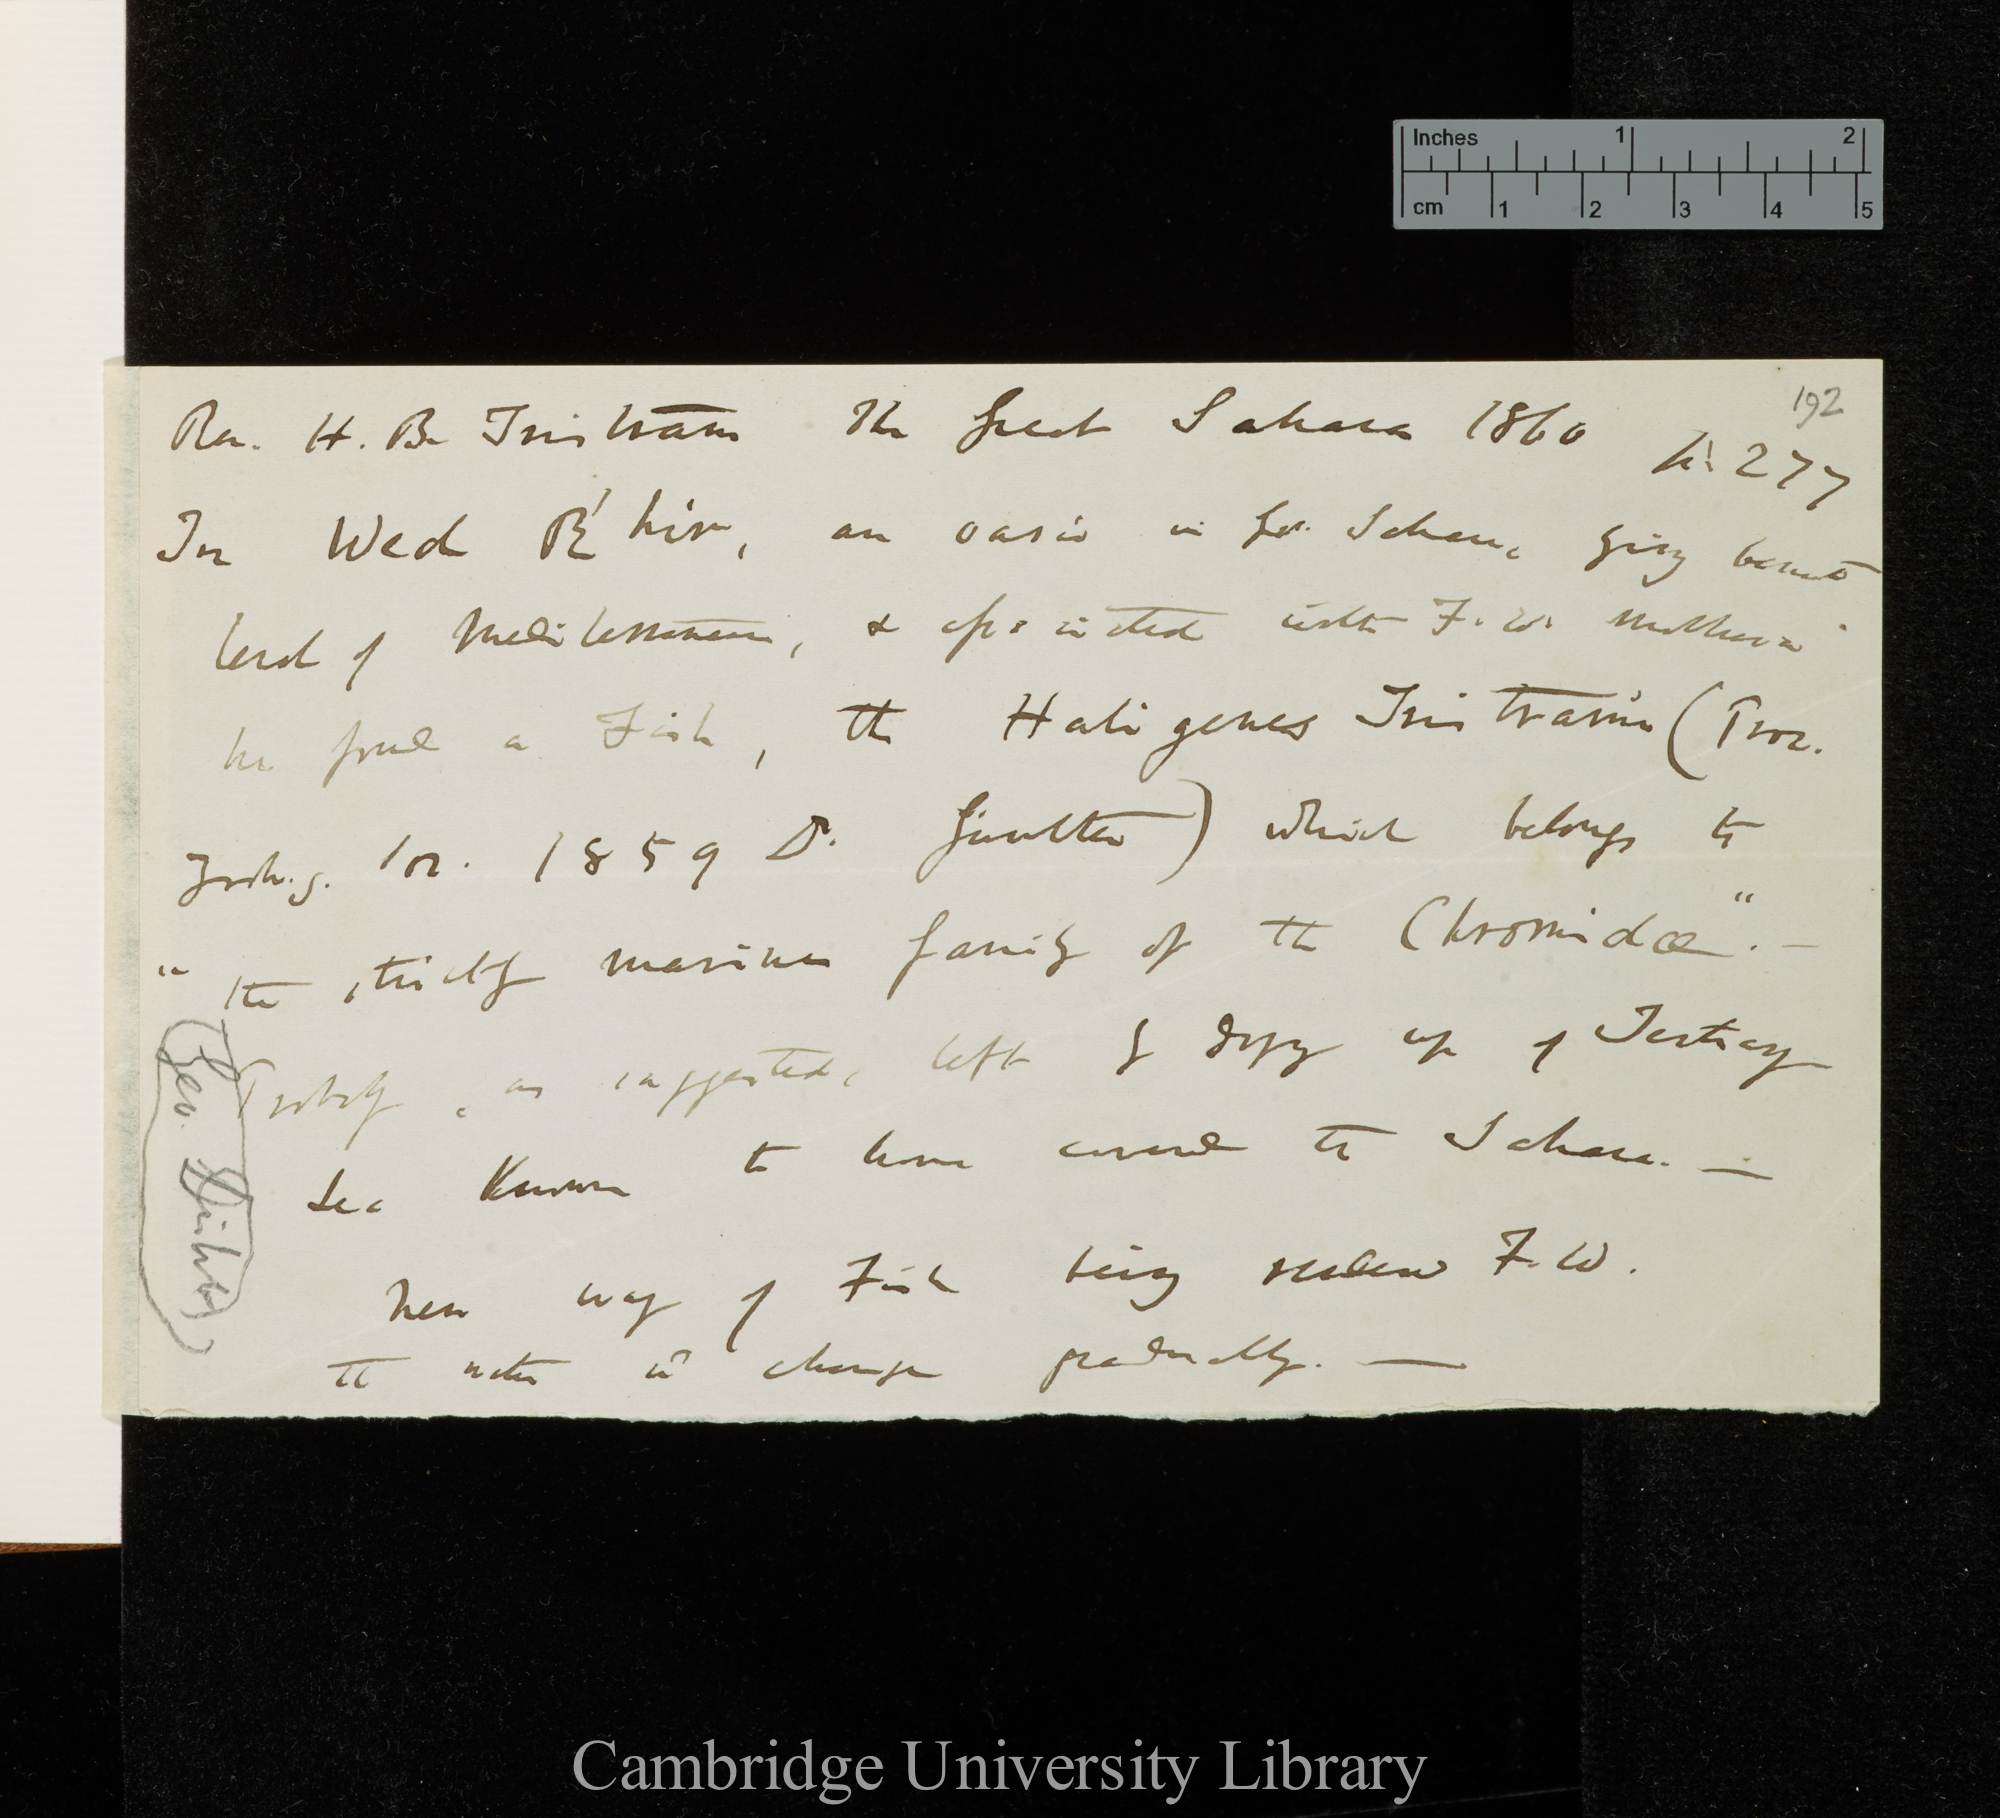 Inches 1 2
cm 1 2 3 4 5
192
Rev. H. B. Tristram The Great Sahara 1860 p. 277
In Wed R'hir, an oasis in Gr. Sahara, lying beneath
level of Mediterranean, & associated with F.W. Mollusca
he found a Fish, the Haligenes Tristrami (Proc.
Zoolog. Soc. 1859 Dr. Günther) which belongs to
"the strictly marine family of the Chromidæ". —
Probably, as suggested, left by drying up of Tertiary
Sea known to have covered the Sahara. —
New way of Fish being rendered F.W.
the water is change gradually. —
Geo. Distrib
Cambridge University Library